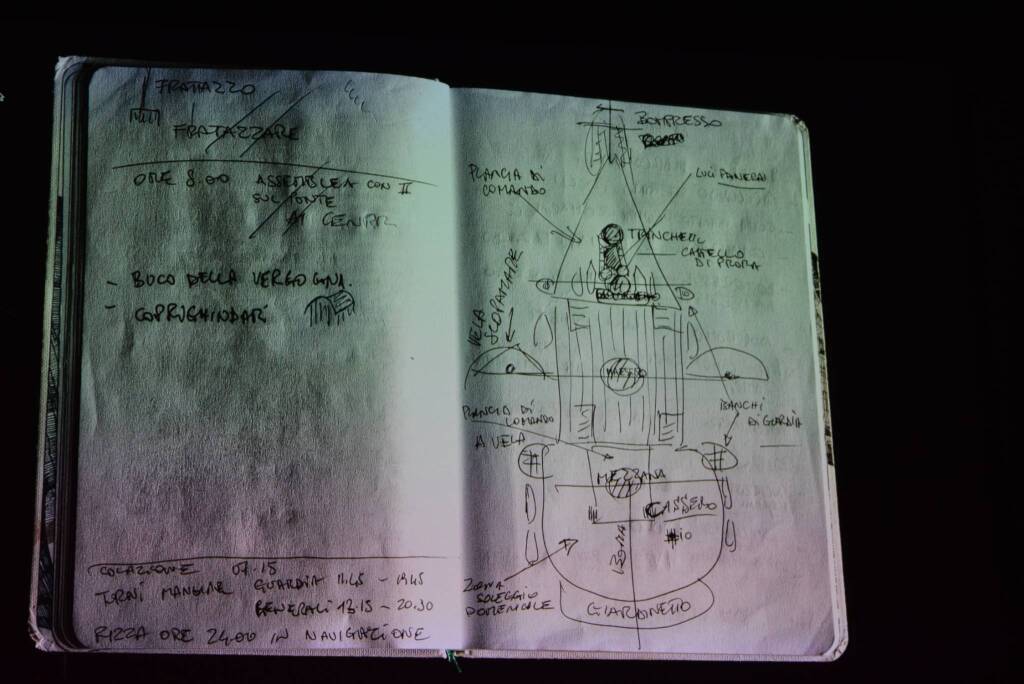 FRATAZZO
FRATAZZARE
ORE 8.00 ASSEMBLEA CON II
SUL PONTE
DI
- BUCO DELLA VERGOGNA.
- COPRIGHINDARI
COLAZIONE 07.15
TURNI MANGIARE GUARDIA 11.45 - 19.45
GENERALI 13.15 - 20.30
RIZZA ORE 24.00 IN NAVIGAZIONE
BOMPRESSO
PLANCIA DI
COMANDO
LUCI
TRINCHETTO
CASTELLO
DI PRORA
VELA
SCOPAMARE
MAESTRO
PLANCIA DI
COMANDO
A VELA
BANCHI
DI GUARDIA
MEZZANA
CASSERO
#10
BOMA
ZONA
SOLEGGIO
DOMENICALE
GIARDINETTO